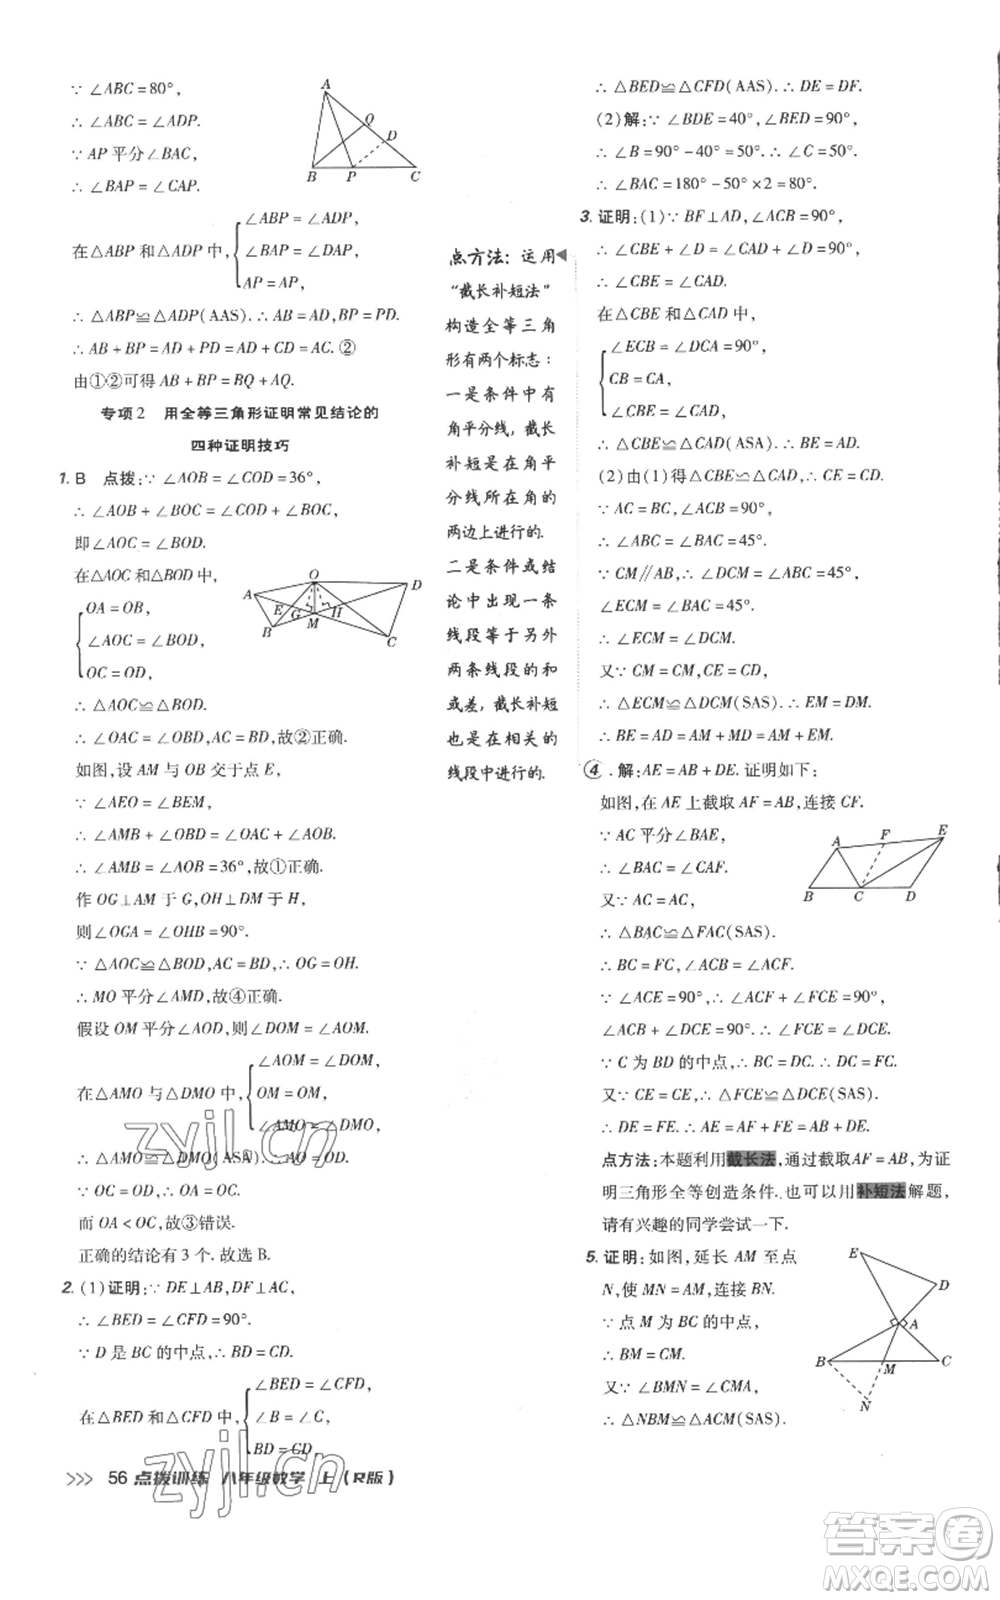 ∵ ∠ABC=80°,
∴ ∠ABC = ∠ADP.
∵ AP 平分∠BAC,
∴ ∠BAP = ∠CAP.
在△ABP 和△ADP 中,
∠ABP = ∠ADP,
∠BAP = ∠DAP,
AP = AP,
∴ △ABP≌△ADP(AAS).∴ AB = AD,BP = DP.
∴ AB + BP = AD + DP = AD + CD = AC. ②
由①②可得 AB + BP = BQ + AQ.
A
Q
D
B P C
专项 2 用全等三角形证明常见结论的
四种证明技巧
1. B 点拨:∵ ∠AOB = ∠COD=36°,
∴ ∠AOB + ∠BOC = ∠COD + ∠BOC,
即∠AOC = ∠BOD.
在△AOC 和△BOD 中,
OA = OB,
∠AOC = ∠BOD,
OC = OD,
∴ △AOC≌△BOD.
∴ ∠OAC = ∠OBD,AC = BD,故②正确.
如图,设 AM 与 OB 交于点 E,
∵ ∠AEO = ∠BEM,
∴ ∠AMB + ∠OBD = ∠OAC + ∠AOB.
∴ ∠AMB = ∠AOB = 36°,故①正确.
作 OG⊥AM 于 G,OH⊥DM 于 H,
则∠OGA = ∠OHB = 90°.
∵ △AOC≌△BOD,AC = BD,∴ OG = OH.
∴ MO 平分∠AMD,故④正确.
假设 OM 平分∠AOD,则∠DOM = ∠AOM.
在△AMO 与△DMO 中,
∠AOM = ∠DOM,
OM = OM,
∠AMO = ∠DMO,
∴ △AMO≌△DMO(ASA).∴ OA = OD.
∵ OC = OD,∴ OA = OC.
而 OA < OC,故③错误.
正确的结论有 3 个. 故选 B.
O
A
D
E
G
H
B
M
C
2. (1)证明:∵ DE⊥AB,DF⊥AC,
∴ ∠BED = ∠CFD = 90°.
∵ D 是 BC 的中点,∴ BD = CD.
在△BED 和△CFD 中,
∠BED = ∠CFD,
∠B = ∠C,
BD = CD,
点方法:运用
“截长补短法”
构造全等三角
形有两个标志:
一是条件中有
角平分线,截长
补短是在角平
分线所在角的
两边上进行的.
二是条件或结
论中出现一条
线段等于另外
两条线段的和
或差,截长补短
也是在相关的
线段中进行的.
∴ △BED≌△CFD(AAS).∴ DE = DF.
(2)解:∵ ∠BDE = 40°,∠BED = 90°,
∴ ∠B = 90° - 40° = 50°.∴ ∠C = 50°.
∴ ∠BAC = 180° - 50° × 2 = 80°.
3. 证明:(1)∵ BF⊥AD,∠ACB = 90°,
∴ ∠CBE + ∠D = ∠CAD + ∠D = 90°.
∴ ∠CBE = ∠CAD.
在△CBE 和△CAD 中,
∠ECB = ∠DCA = 90°,
CB = CA,
∠CBE = ∠CAD,
∴ △CBE≌△CAD(ASA).∴ BE = AD.
(2)由(1)得△CBE≌△CAD,∴ CE = CD.
∵ AC = BC,∠ACB = 90°,
∴ ∠ABC = ∠BAC = 45°.
∵ CM∥AB,∴ ∠DCM = ∠ABC = 45°,
∠ECM = ∠BAC = 45°.
∴ ∠ECM = ∠DCM.
又∵ CM = CM,CE = CD,
∴ △ECM≌△DCM(SAS).∴ EM = DM.
∴ BE = AD = AM + MD = AM + EM.
4. 解:AE = AB + DE. 证明如下:
如图,在 AE 上截取 AF = AB,连接 CF.
∵ AC 平分∠BAE,
∴ ∠BAC = ∠CAF.
又∵ AC = AC,
∴ △BAC≌△FAC(SAS).
∴ BC = FC,∠ACB = ∠ACF.
∵ ∠ACE = 90°,∴ ∠ACF + ∠FCE = 90°,
∠ACB + ∠DCE = 90°.∴ ∠FCE = ∠DCE.
∵ C 为 BD 的中点,∴ BC = DC.∴ DC = FC.
又∵ CE = CE,∴ △FCE≌△DCE(SAS).
∴ DE = FE.∴ AE = AF + FE = AB + DE.
A
F
E
B C D
点方法:本题利用截长法,通过截取AF = AB,为证
明三角形全等创造条件.也可以用补短法解题,
请有兴趣的同学尝试一下.
5. 证明:如图,延长 AM 至点
N,使 MN = AM,连接 BN.
∵ 点 M 为 BC 的中点,
∴ BM = CM.
又∵ ∠BMN = ∠CMA,
∴ △NBM≌△ACM(SAS).
E
D
A
B
M
C
N
>>> 56 点拨训练 八年级数学 上(R版)
zyjl.cn
zyjl.cn
答案卷
MXQE.COM